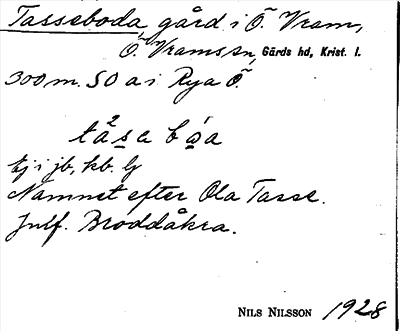 Tasseboda, gård i Ö. Vram,
Ö. Vrams sn, Gärds hd, Krist. l.
300 m. SO a i Rya Ö.
Ej i jb, kb. lj
Namnet efter Ola Tasse.
Jmf. Broddåkra.
NILS NILSSON 1928